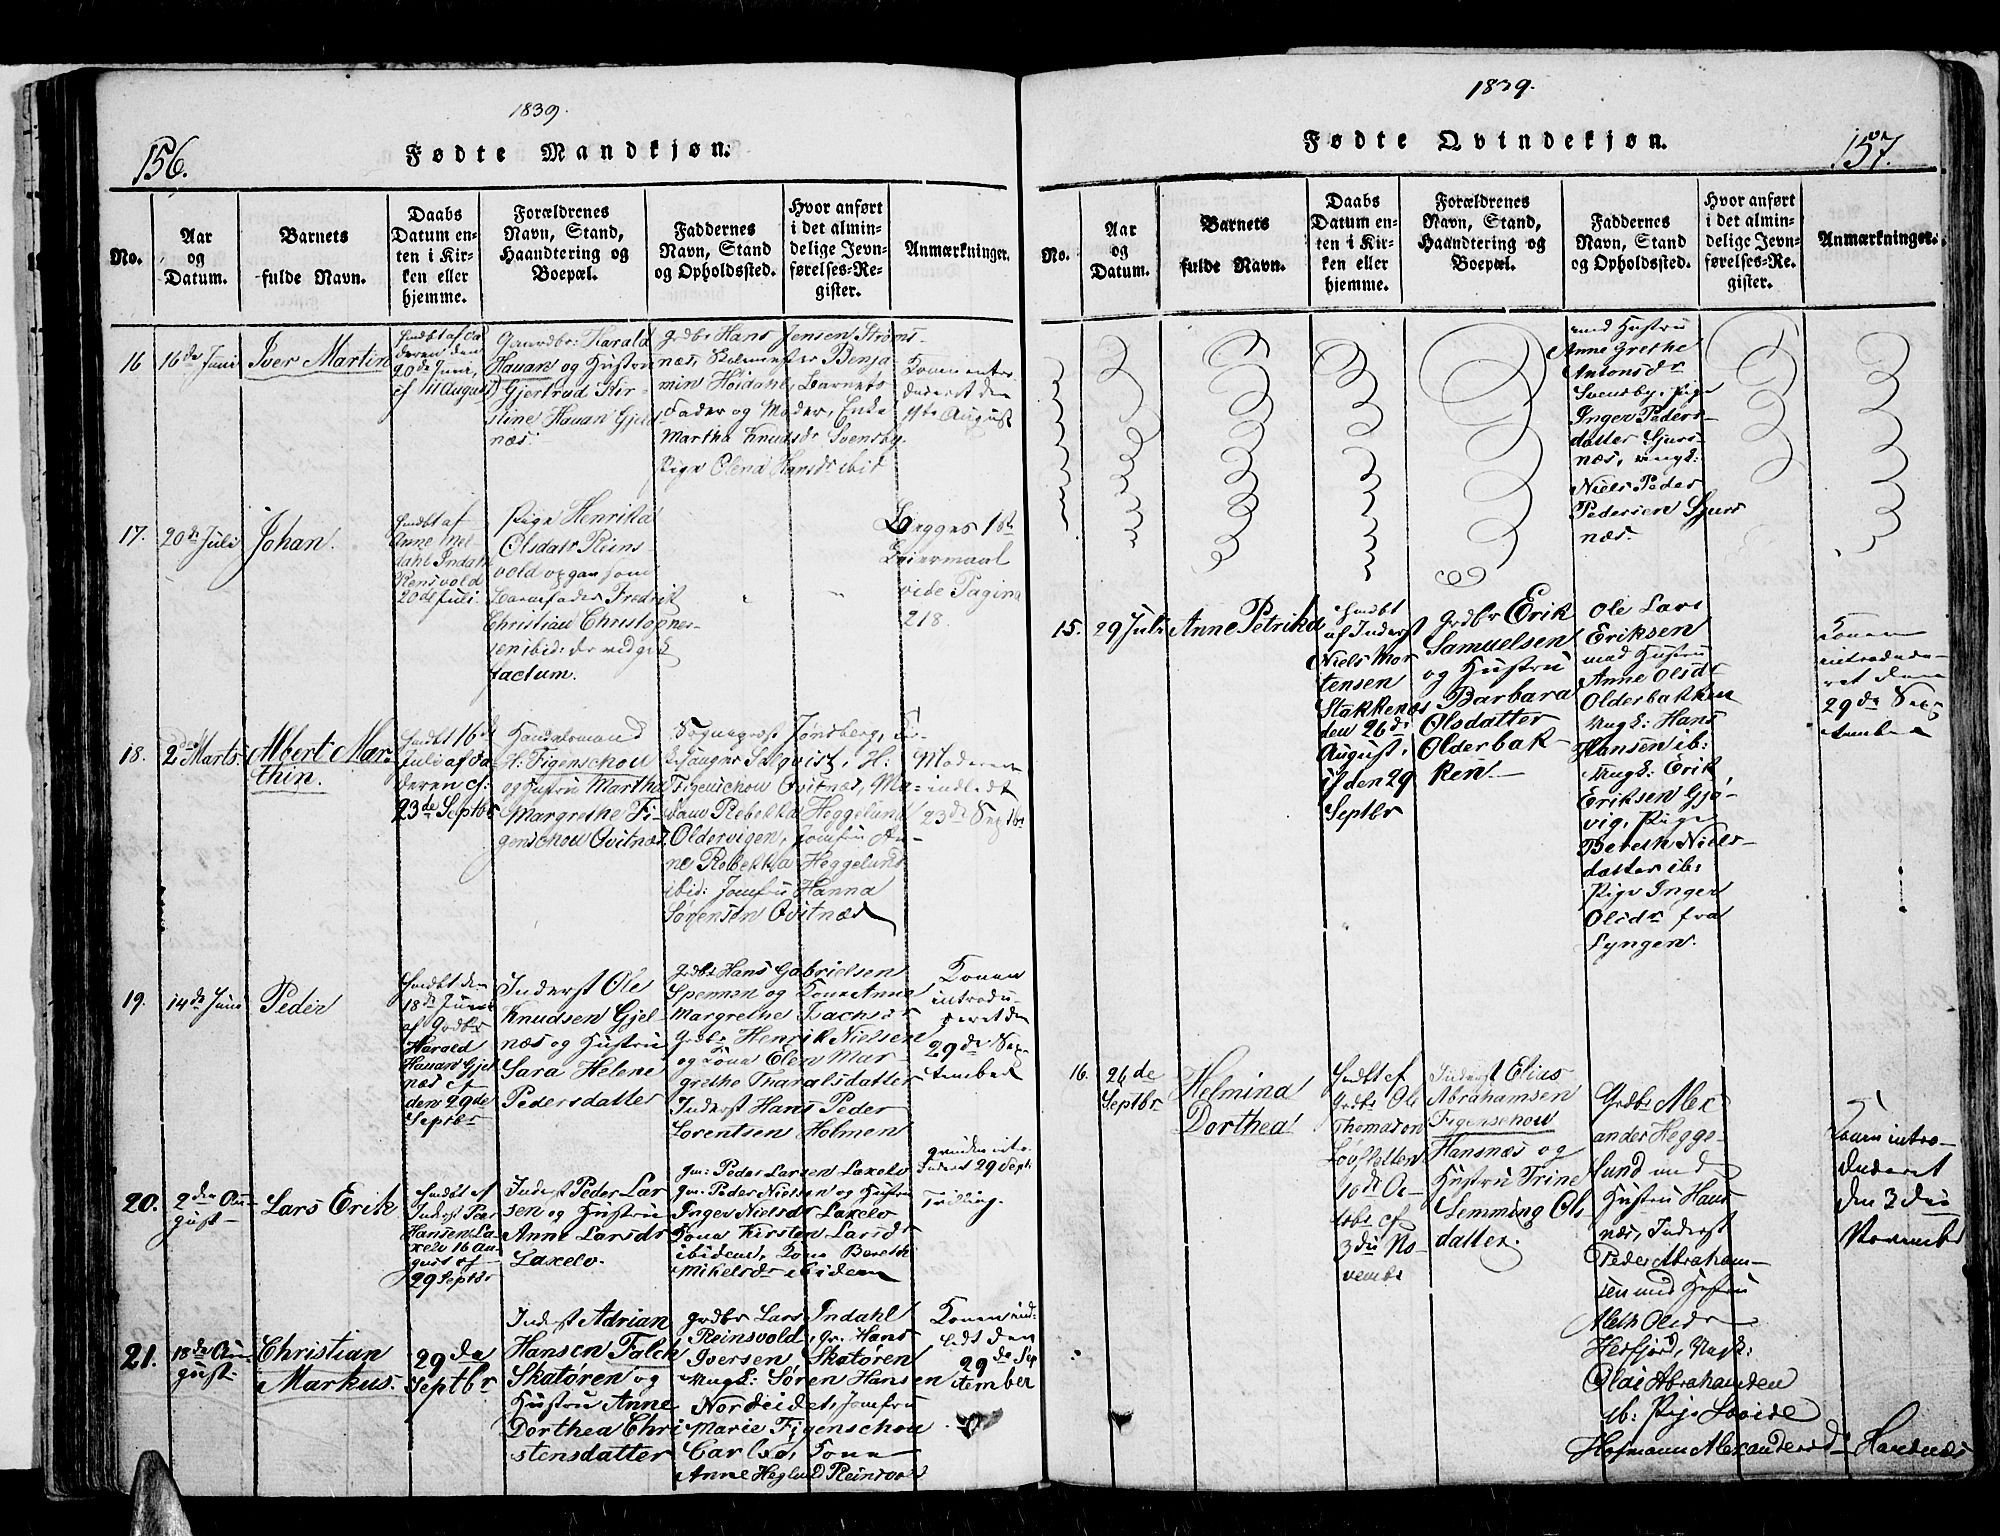 1839.
156.
Fødte Mandkjøn.
No.
Aar
og
Datum.
Barnets
fulde Navn.
Daabs
Datum en-
ten i Kir-
ken eller
hjemme.
Forældrenes
Navn, Stand,
Haandtering og
Boepæl.
Faddernes
Navn, Stand
og Opholdssted.
Hvor anført
i det almin-
delige Jevn-
førelses-Re-
gister.
Anmærkninger.
16
16de Juni
Iver Martin
hmdbt af
20de Juni,
Gaardbr: Harald
Hauan og Hustru
Gjertrud Kir-
stine Hauan Gjel-
næs.
Grdbr Hans Jensen Strøms-
næs, Skolemester Benja-
min Høidahl, Barnets
Fader og Moder, Enke
Martha Knudsdr Svensby.
Pige Olena Hansdr ibid
August
17.
20de Juli
Johan.
hmdbt af
Anne
dahl Indahl
Rensvold
20de Juli.
Pige Henrika
Olsdatr Reins
vold
Barnefader Fredrik
Christian Christophers-
sen ibid:
factum.
Begges 1ste
Leiermaal
vide Pagina
218.
18.
2den Marts
Albert Mar-
thin.
hmdbt 16de
Juli af Fa-
deren cf:
23de Septbr
Handelsmand
H: Figenschou
og Hustru Martha
Margrethe Fi-
genschou Qvitnæs.
Sogneprest Jøndberg,
H:
Figenschou Qvitnæs, Ma-
dam Rebekka Heggelund
Oldervigen, Jomfru An-
ne Rebekka Heggelund
ibid: Jomfru Hanna
Sørensen Qvitnæs
Moderen
indledt
23de Septbr
19.
14de Juni
Peder
hmdbt den
18de Juni
af Grdbr
Harald
Hauan Gjel
næs cf
den 29de
Septbr
Inderst Ole
Knudsen Gjel-
næs og Hustru
Sara Helene
Pedersdatter
Grdbr Hans Gabrielsen
Spennen og Kone Anne
Margrethe Zachsdr
Grdbr Henrik Nielsen
og Kone Elen Mar-
grethe Tharalsdatter
Inderst Hans Peder
Lorentsen Holmen
Konen
introdu-
ceret den
29de Sep-
tember
20.
2den Au-
gust
Lars Erik
hmdbt af
Inderst Peder
Hansen La-
xelv 16 Au-
gust cf
29 Septbr
Inderst Peder Lar
sen og Hustru
Anne Larsdr
Laxelv.
Gm: Peder Larsen Laxelv
Gm: Peder Nielsen og Hustru
Inger Nielsdr Laxelv
Kone Kirsten Larsdr
ibidem, Kone Bereth
Mikelsdr ibidem
29 Septr
Tvilling.
21.
18de Au-
gust.
Christian
Markus.
29de
Septbr
Inderst Adrian
Hansen Falch
Skatøren og
Hustru Anne
Dorthea Chri
stensdatter
Grdbr Lars Indahl
Reinsvold, Gr. Hans
Iversen Skatøren
Ungk: Søren Hansen
Nordeidet, Jomfru
Marie Figenschou
Carlsø, Kone
Anne Heglund Reinsvold
Konen ind-
ledt den
29de Sep
tember
1839.
157.
Fødte Qvindekjøn.
No.
Aar
og
Datum.
Barnets
fulde Navn.
Daabs
Datum en-
ten i Kir-
ken eller
hjemme.
Forældrenes
Navn, Stand,
Haandtering og
Boepæl.
Faddernes
Navn, Stand
og Opholdssted.
Hvor anført
i det almin-
delige Jevn-
førelses-Re-
gister.
Anmærkninger.
med Hustru
Anne Grethe
Antonsdr
Svensby, Pige
Inger Peders-
datter Sjurs-
næs, Ungk:
Niels Peder
Pedersen Sjurs
næs.
15.
29 Juli
Anne Petrika
hmdbt
af Inderst
Niels Mor
tensen
Stakkenæs
den 26de
August,
cf den 29
Septbr
Grdbr Erik
Samuelsen
og Hustru
Barbara
Olsdatter
Olderbak-
ken.
Ole Lars
Eriksen
med Hustru
Anne Olsdr
Olderbakken
Ungk: Hans
Hansen ib:
Ungk: Erik
Eriksen Gjø-
vig, Pige
Bereth Niels-
datter ib:
Pige Inger
Olsdr fra
Lyngen.
Konen
introduce-
ret den
29de Sep
tember
16.
26de
Septbr
Helmina
Dorthea
hmdbt af
Grdbr Ole
Thomason
10de Oc-
tobr cf
3die No-
vembr
Inderst Elias
Abrahamsen
Figenschou
Hansnæs og
Hustru Trine
Lemming Ols
datter.
Grdbr Alex
ander Hegge-
lund med
Hustru Hans
næs, Inderst
Peder Abraham-
sen med Hustru
Aleth Olsdr
Ungk:
Olai Abrahamsen
ib: Pige Lovise
Hofmann Alexandersdr Hansnæs
Konen intro-
duceret
den 3die
November